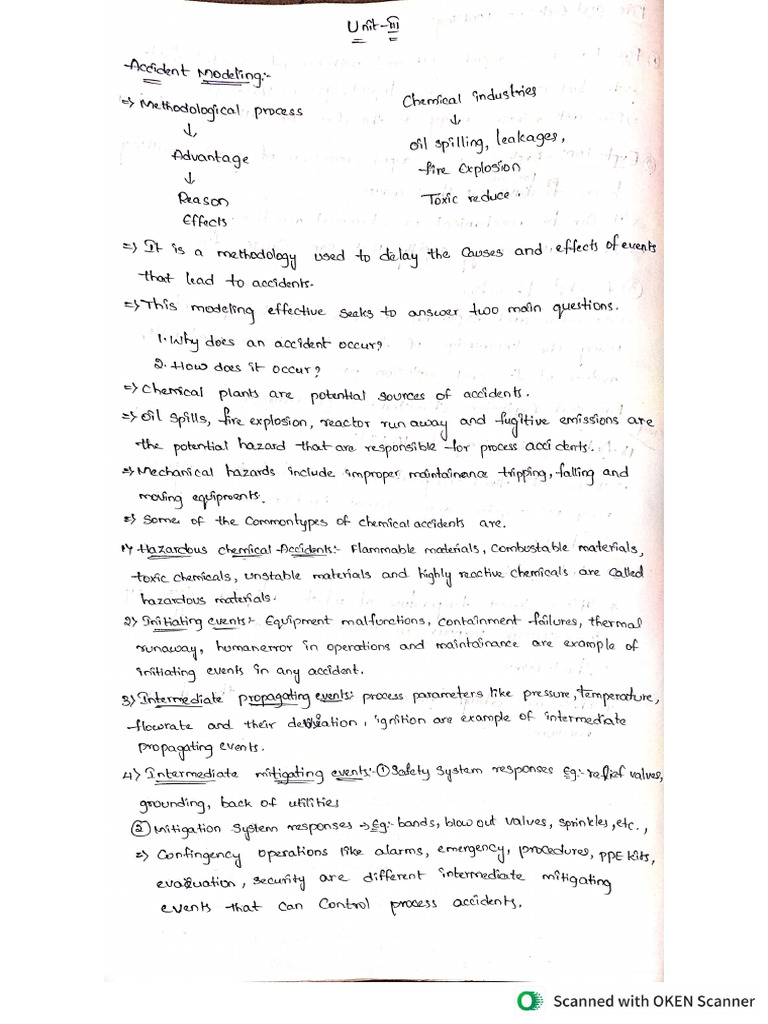 Unit-III
Accident Modeling:-
=> Methodological process
↓
Advantage
↓
Reason
Effects
Chemical industries
↓
oil spilling, leakages,
fire Explosion
Toxic reduce.
=> It is a methodology used to delay the Causes and effects of events
that lead to accidents.
=> This modeling effective seeks to answer two main questions.
1. Why does an accident occur?
2. How does it occur?
=> Chemical plants are potential sources of accidents.
=> Oil spills, fire explosion, reactor run away and fugitive emissions are
the potential hazard that are responsible for process accidents.
=> Mechanical hazards include improper maintainance tripping, falling and
moving equipments.
=> Some of the Commontypes of chemical accidents are.
1) Hazardous chemical Accidents:- Flammable materials, Combustable materials,
toxic chemicals, unstable materials and highly reactive chemicals are Called
hazardous materials.
2) Initiating events:- Equipment malfunctions, containment failures, thermal
runaway, humanerror in operations and maintainance are example of
initiating events in any accident.
3) Intermediate propagating events:- process parameters like pressure, temperature,
flowrate and their deviation, ignition are example of intermediate
propagating events.
4) Intermediate mitigating events:- ① Safety System responses Eg:- relief valves,
grounding, back of utilities
② Mitigation System responses → Eg:- bands, blow out valves, sprinkles, etc.,
=> Contingency operations like alarms, emergency, procedures, PPE kits,
evacuation, security are different intermediate mitigating
events that Can Control process accidents.
Scanned with OKEN Scanner